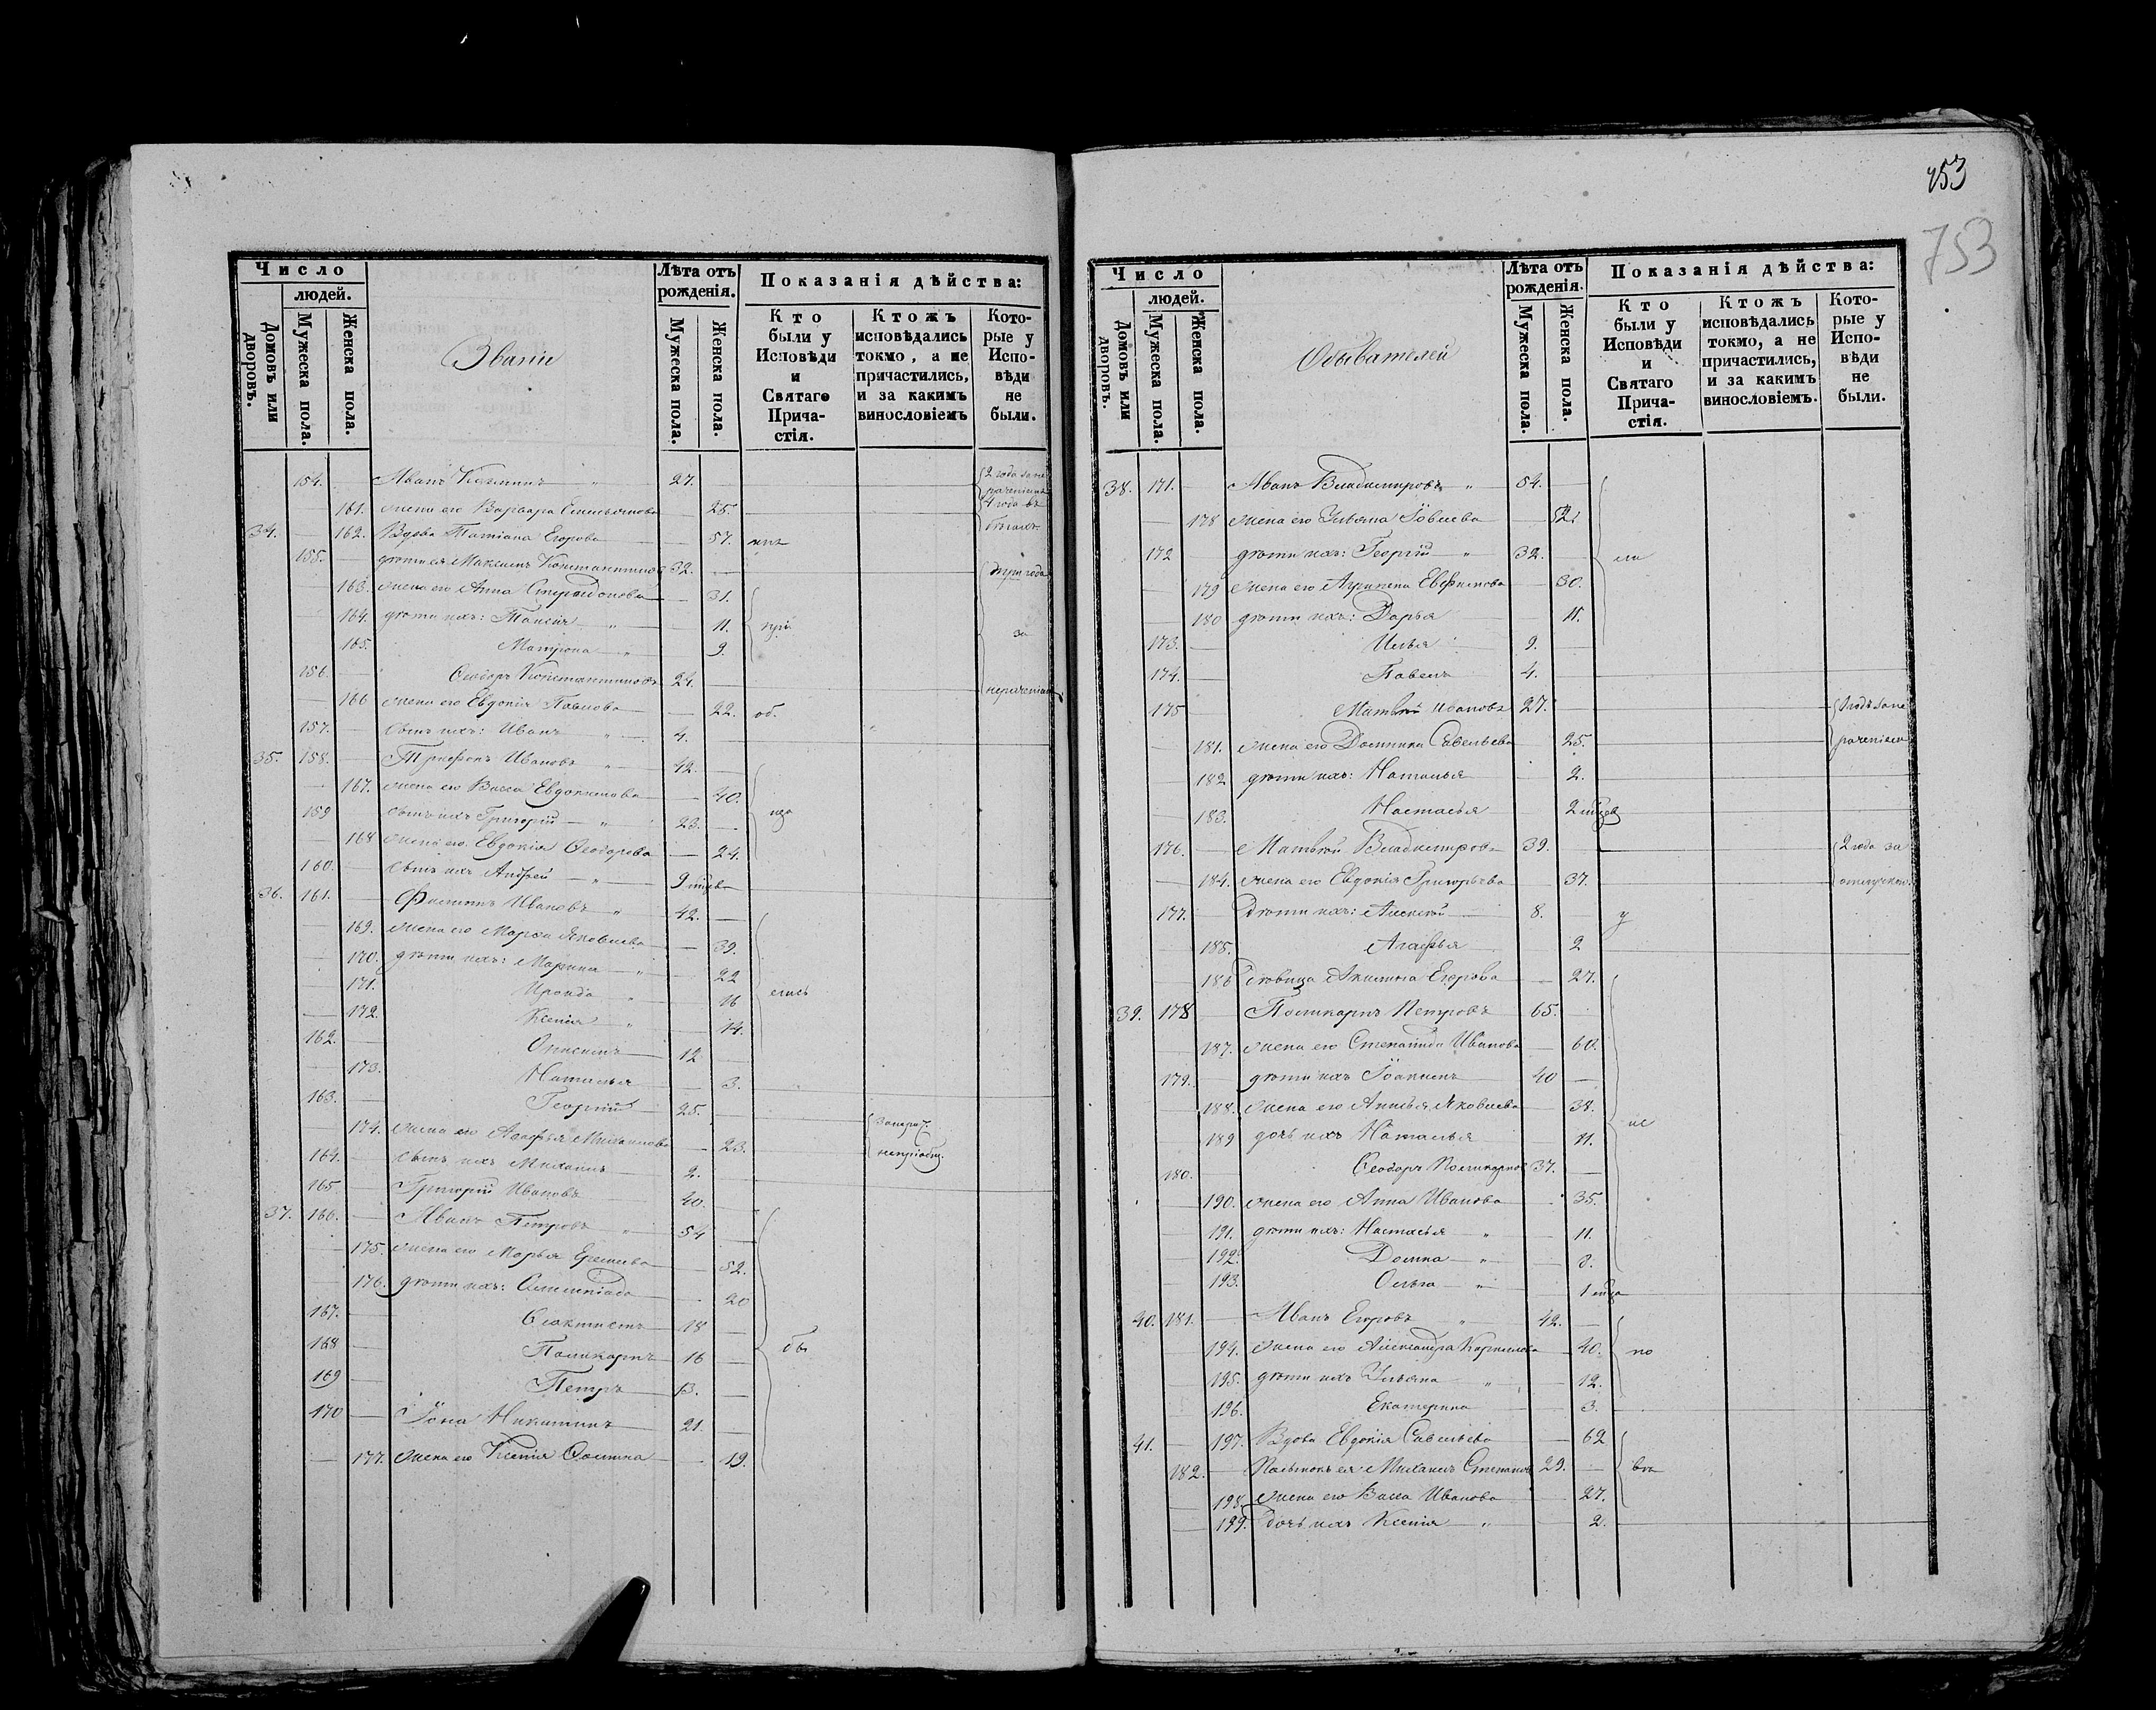 Число
людей.
Домовъ или дворовъ.
Мужеска пола.
Женска пола.
Званiи
Лѣта отъ рожденія.
Мужеска пола.
Женска пола.
Показанія дѣйства:
Кто были у Исповѣди и Святаго Прича-стія.
Ктожъ исповѣдались токмо, а не причастились, и за какимъ винословіемъ
Кото-рые у Испо-вѣди не были.
154. Иванъ 27. 2 года за не
161. жена его Варвара Емельянова 25. раченіемъ 4 года въ
34. 162. Вдова Татіана Егорова 57. бѣгахъ
155. дѣти ея Максимъ Константиновъ 32. три года
163. жена его Анна Спиридонова 31.
164. дѣти ихъ: Таисія 11. при за
165. Матрона 9.
156. Ѳеодоръ Константиновъ 24. нераченіемъ
166 жена его Евдокія Павлова 22. об.
157. сынъ ихъ: Иванъ 4.
35. 158. Трифонъ Ивановъ 42.
167. жена его Васса Евдокимова 40.
159 сынъ ихъ Григорій 23. ща
168 жена его Евдокія Ѳеодорова 24.
160. сынъ ихъ Андрей 9 мцвъ
36. 161. Филиппъ Ивановъ 42.
169. жена его Марѳа Яковлева 39.
170. дѣти ихъ: Марина 22
171. Ираида 16 лись
172. Ксенія 14.
162. Онисимъ 12
173. Наталья 3.
163. Георгій 25.
174. жена его Агафья Михаилова 23.
164. сынъ ихъ Михаилъ 2. непріобщ.
165. Григорій Ивановъ 40.
37. 166. Иванъ Петровъ 54
175. жена его Марья Еремеева 52.
176. дѣти ихъ: Олимпіада 20
167. Ѳеоктистъ 18
168 Поликарпъ 16 бы
169 Петръ 13.
170 Іона Никитинъ 21.
177. жена его Ксенія Ѳомина 19.
753
753
Число
людей.
Домовъ или дворовъ.
Мужеска пола.
Женска пола.
Обывателей
Лѣта отъ рожденія.
Мужеска пола.
Женска пола.
Показанія дѣйства:
Кто были у Исповѣди и Святаго Прича-стія.
Ктожъ исповѣдались токмо, а не причастились, и за какимъ винословіемъ.
Кото-рые у Испо-вѣди не были.
38. 171. Иванъ Владимировъ 54.
178 жена его Ульяна Іовлева 52.
172 дѣти ихъ: Георгій 32. ли
179 жена его Агрипена Евфимова 30.
180 дѣти ихъ: Дарья 11.
173. Илья 9.
174. Павелъ 4.
175 Матвѣй Ивановъ 27. годъ за не
181. жена его Домника Савельева 25. раченіемъ
182 дѣти ихъ: Наталья 2.
183. Настасья 2 мцевъ
176. Матвѣй Владимировъ 39. 2 года за
184. жена его Евдокія Григорьева 37. отлучкою
177. Дѣти ихъ: Алексѣй 8. у
185. Агафья 2
186 дѣвица Акилина Егорова 27.
39. 178 Поликарпъ Петровъ 65.
187. жена его Степанида Иванова 60.
179. дѣти ихъ Іоакимъ 40
188. жена его Анисья Яковлева 38. ис
189 дочь ихъ Наталья 11.
180. Ѳеодоръ Поликарповъ 37.
190. жена его Анна Иванова 35.
191. дѣти ихъ: Настасья 11.
192. Домна 8.
193. Ольга 1 мца
40. 181. Иванъ Егоровъ 42.
194. жена его Александра Кирилова 40. по
195. дѣти ихъ Ульяна 12.
196. Екатерина 3.
41. 197. Вдова Евдокія Савельева 62
182. Племянъ ея Михаилъ Степановъ 29. вѣ
198. жена его Васса Иванова 27.
199. дочь ихъ Ксенія 2.